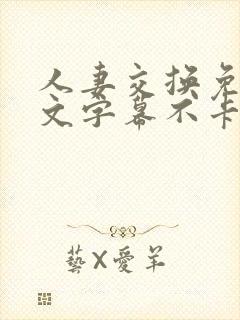 人妻交换免
文字幕不卡
藝X愛羊